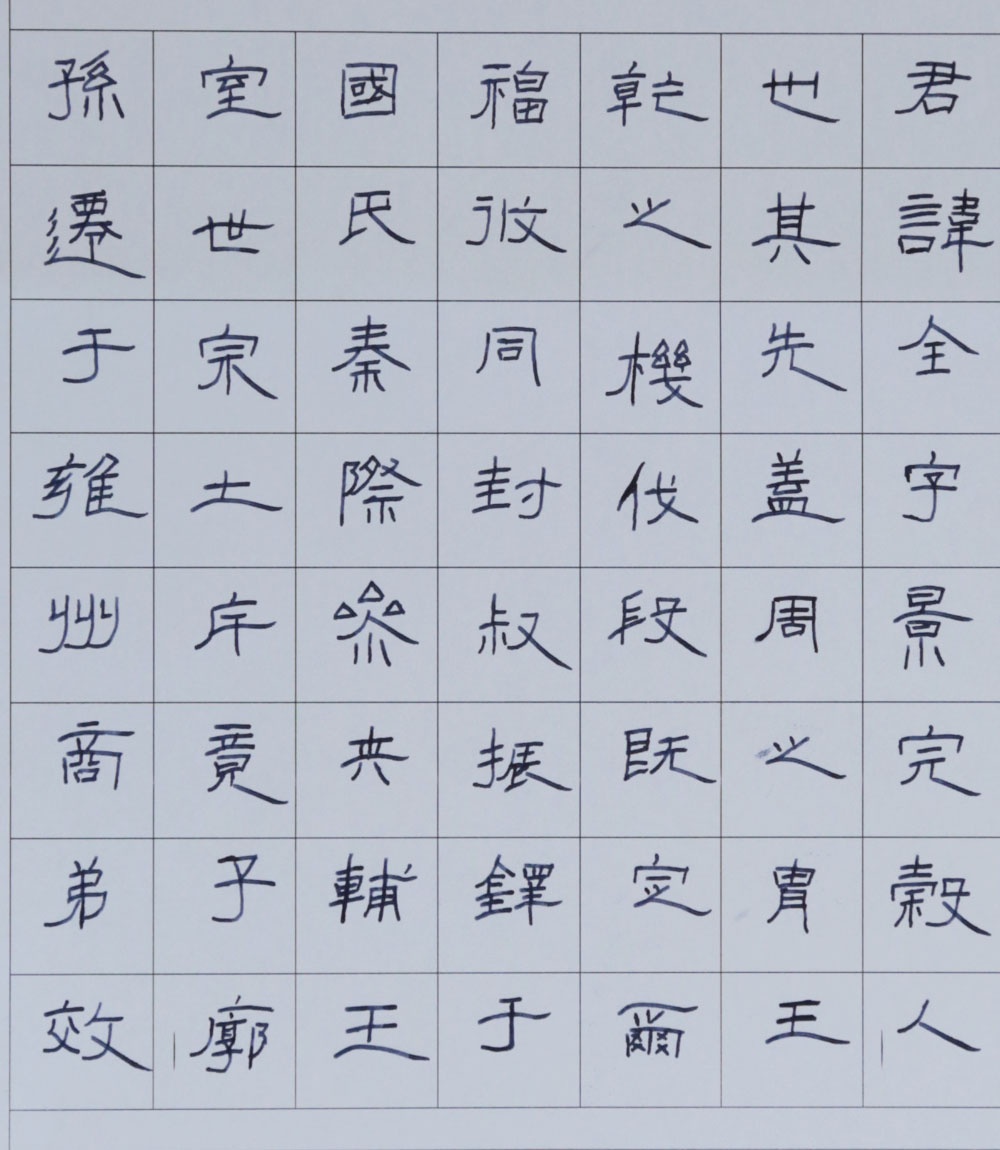 君諱全字景完穀人
也其先蓋周之胄王
乾之機伐殷既定爾
福攸同封叔振鐸于
國氏秦際參夾輔王
室世宗土斥竟子廓
孫遷于雍州商弟效